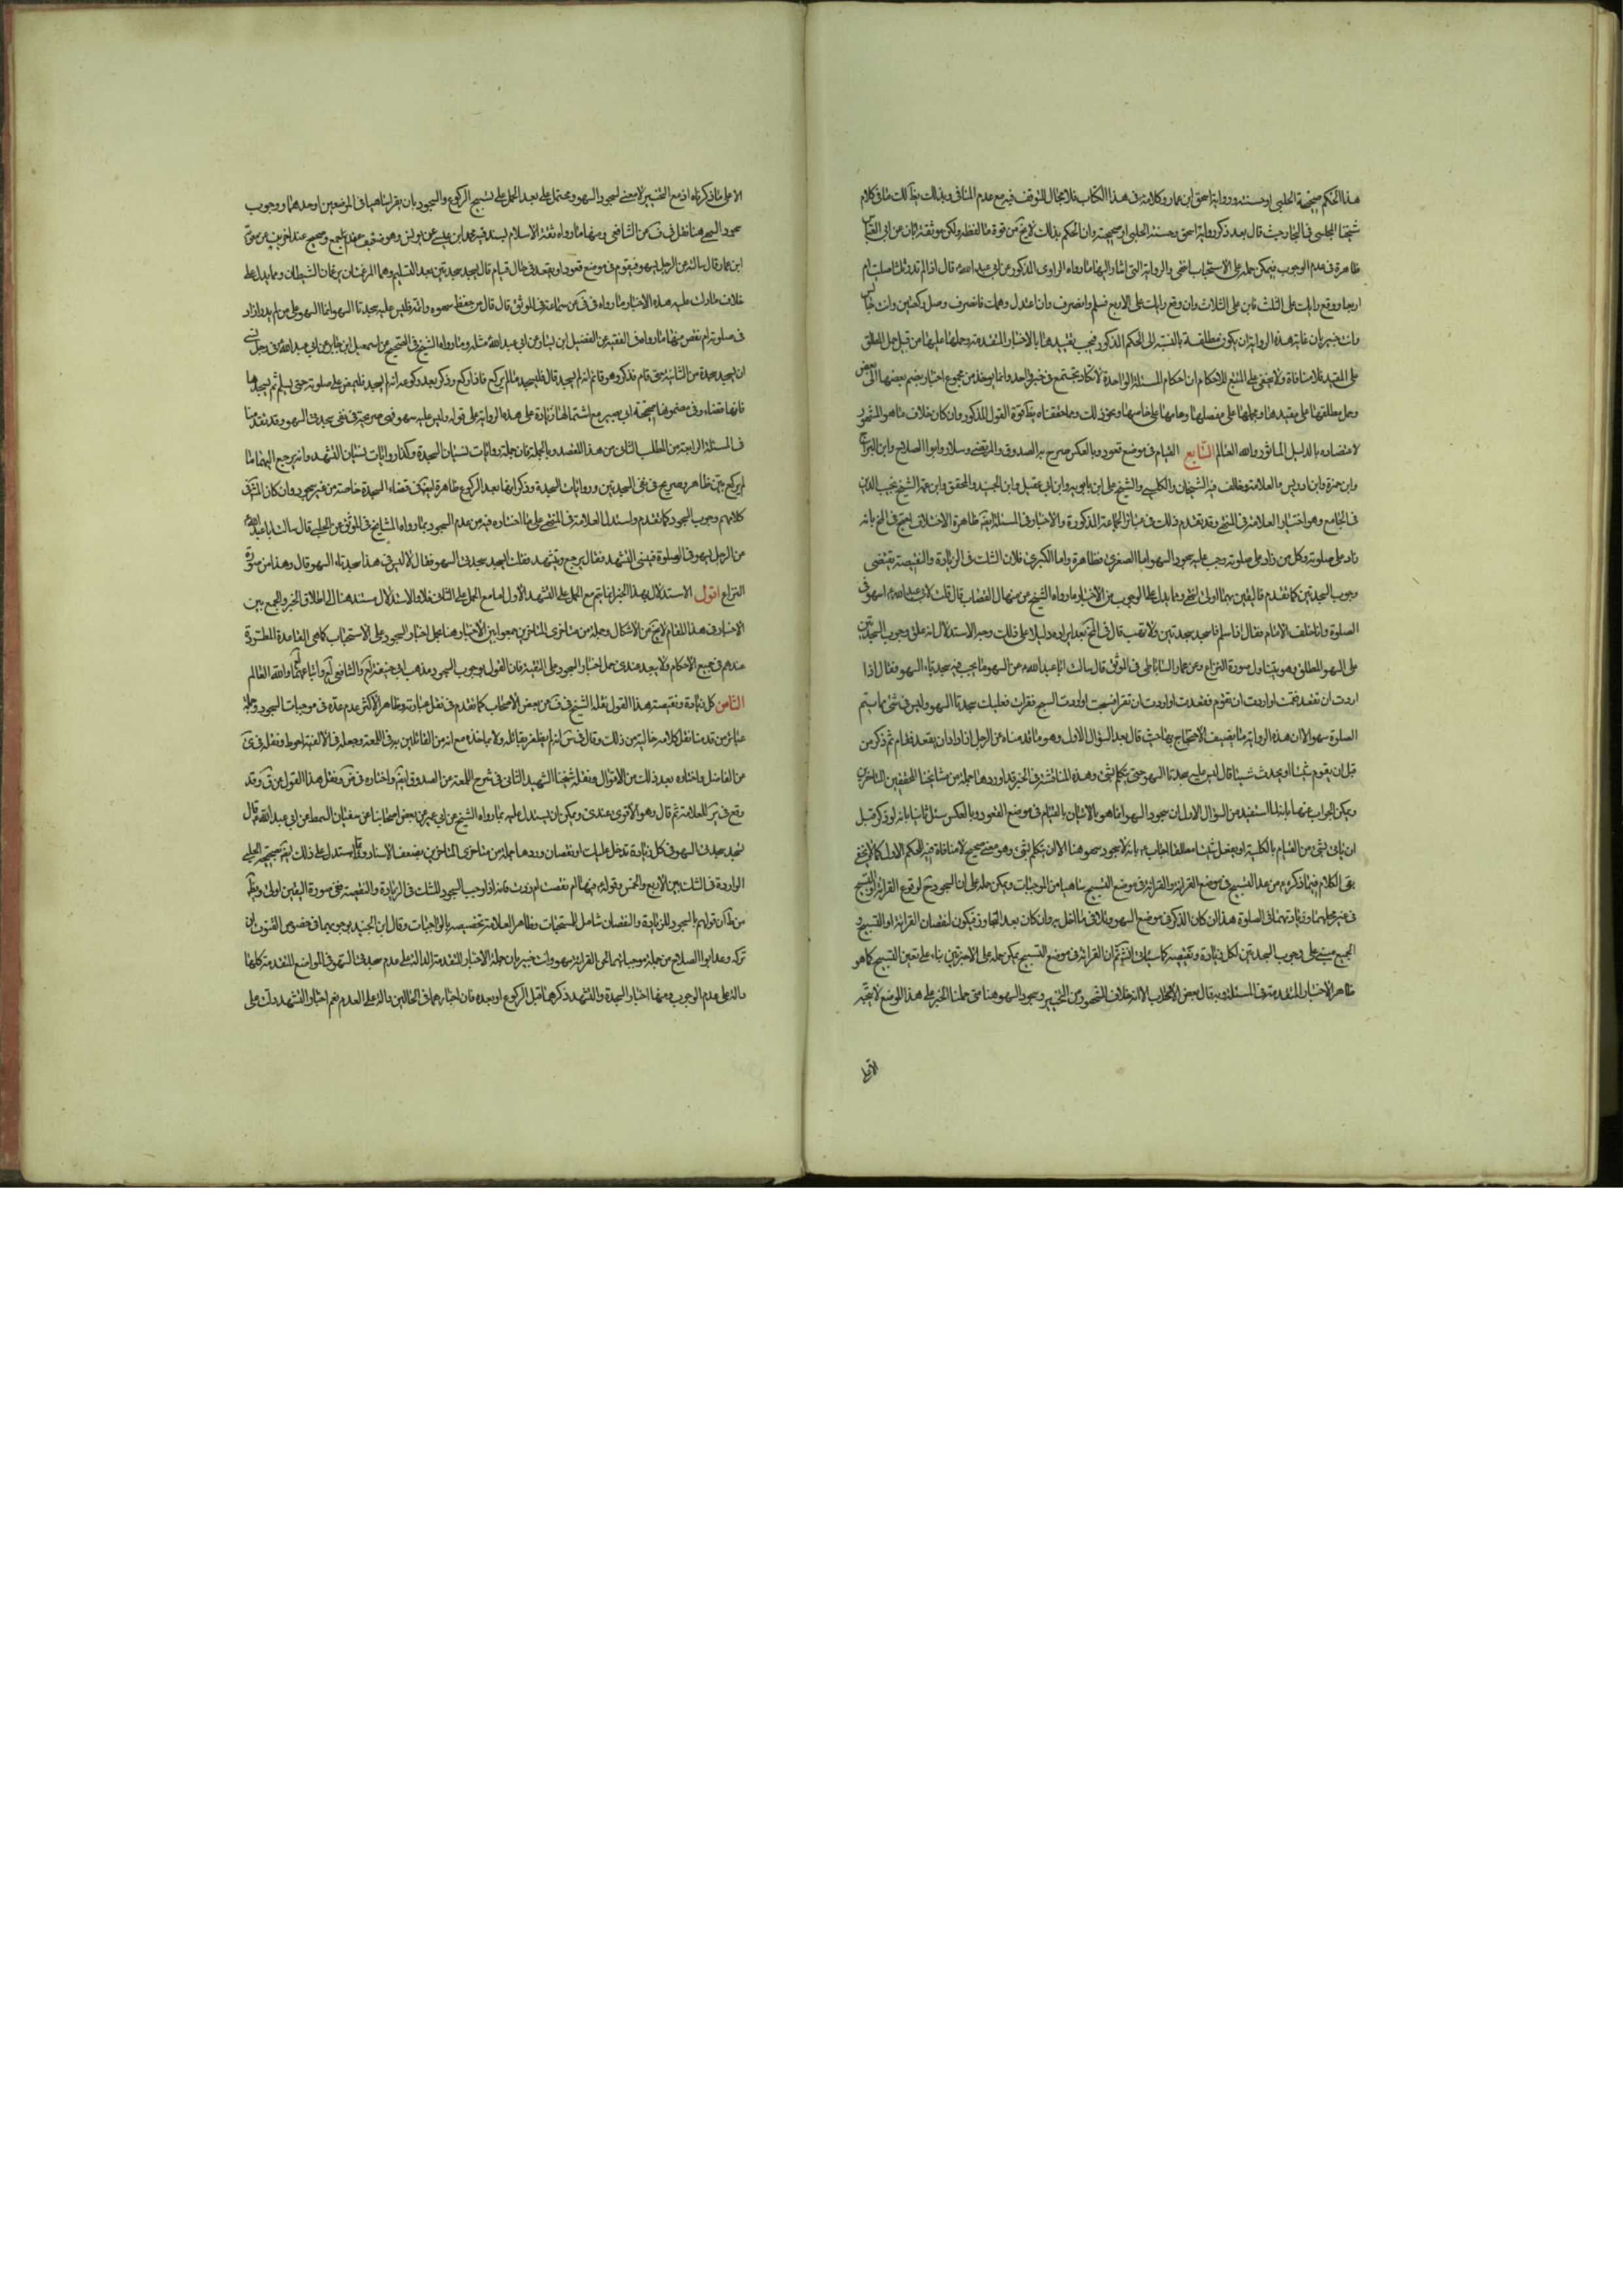 هذا الحكم صحيحة الحلبي او حسنته ورواية اسحق ابن عمار وكلامه في هذا الكتاب فلا مجال للتوقف فيه مع عدم المنافي وبذلك يظهر لك ما في كلام
شيخنا المجلسي في البحار حيث قال بعد ذكر رواية اسحق وحسنة الحلبي او صحيحته وان الحكم بذلك لا يخ من قوة
ظاهرة في عدم الوجوب فيمكن حمله على الاستحباب انتهى والرواية التي اشار اليها ما رواه الراوي المذكور عن ابي عبد الله قال اذا لم تدر ثلثا صليت ام
اربعا ووقع رايك على الثلث فابن على الثلاث وان وقع رايك على الاربع فسلم وانصرف وان اعتدل وهمك فانصرف وصل ركعتين وانت جالس
وانت خبير بان غاية هذه الرواية ان يكون مطلقة بالنسبة الى الحكم المذكور فيجب تقييدها بالاخبار المتقدمة وحملها عليها من قبيل حمل المطلق
على المقيد فلا منافاة ولا يخفى على المتتبع للاحكام ان احكام المسئلة الواحدة لا تكاد تجتمع في خبر واحد وانما يوخذ من مجموع اخبار يضم بعضها الى بعض
وحمل مطلقها على مقيدها ومجملها على مفصلها وعامها على خاصها ونحو ذلك ومما حققناه يظهر قوة القول المذكور وان كان خلاف ما هو المشهور
لاعتضاده بالدليل الماثور والله العالم السابع القيام في موضع قعود وبالعكس صرح به الصدوق والمرتضى وسلار وابو الصلاح وابن البراج
وابن حمزة وابن ادريس والعلامة وخالف فيه الشيخان والكليني والشيخ علي ابن بابويه وابن ابي عقيل وابن الجنيد والمحقق وابن عمه الشيخ نجيب الدين
في الجامع وهو اختيار العلامة في المنتهى وقد تقدم ذلك في عبائر الجماعة المذكورة والاخبار في المسئلة ايضا ظاهرة الاختلاف احتج في المخ بانه
زاد على صلوته وكل من زاد على صلوته وجب عليه سجود السهو اما الصغرى فظاهرة واما الكبرى فلان الشك في الزيادة والنقيصة يقتضي
وجوب السجدتين كما تقدم فاليقين بهما اولى انتهى ومما يدل على الوجوب من الاخبار ما رواه الشيخ عن منهال القصاب قال قلت لابي عبد الله اسهو في
الصلوة وانا خلف الامام فقال اذا سلم فاسجد سجدتين ولا تهب قال في المخ بعد ايراده دليلا على ذلك وجه الاستدلال انه علق وجوب السجدتين
على السهو المطلق وهو يتناول صورة النزاع وعن عمار الساباطي في الموثق قال سالت ابا عبد الله عن السهو ما يجب فيه سجدتا السهو فقال اذا
اردت ان تقعد فقمت او اردت ان تقوم فقعدت او اردت ان تقرا فسبحت او اردت ان تسبح فقرات فعليك سجدتا السهو وليس في شئ مما يتم
الصلوة سهو الا ان هذه الرواية مما يضعف الاحتجاج بها حيث قال بعد السؤال الاول وهو ما قدمناه عن الرجل اذا اراد ان يقعد فقام ثم ذكر من
قبل ان يقوم شيئا او يحدث شيئا قال ليس عليه سجدتا السهو حتى يتكلم بشئ وهذه المناقشة في الخبر قد اوردها جملة من مشايخنا المحققين المتاخرين
ويمكن الجواب عنها بانه لما استفيد من السؤال الاول ان سجود السهو انما هو بالاتيان بالقيام في موضع القعود وبالعكس سئل ثانيا بانه لو ذكر قبل
ان ياتي بشئ من القيام بالكلية او يفعل شيئا مطلقا اجاب بانه لا سجود سهو هنا الا ان يتكلم بشئ وهو معنى صحيح لا منافاة فيه للحكم الاول كما لا يخفى
بقي الكلام فيما ذكره من عد التسبيح في موضع القراءة والقراءة في موضع التسبيح ساهيا من الموجبات ويمكن حمله على ان السجود ح لوقوع القراءة والتسبيح
في غير محلهما وزيادتهما في الصلوة هذا ان كان الذكر في موضع السهو وتلافي ما اخل به وان كان بعد التجاوز فيكون لنقصان القراءة او التسبيح و
الجميع مبني على وجوب السجدتين لكل زيادة ونقيصة كما سياتي ان شاء الله ثم ان القراءة في موضع التسبيح يمكن حمله على الاخيرتين بناء على تعين التسبيح كما هو
ظاهر الاخبار المتقدمة في المسئلة وبه قال بعض الاصحاب الا انه خلاف المشهور من التخيير وسجود السهو هنا متى حملنا الخبر على هذا الموضع لا يتجه
الا على
الا على ما ذكرناه اذ مع التخيير لا معنى لسجود السهو ومحتمل على بعد الحمل على تسبيح الركوع والسجود بان يقرا ساهيا في الموضعين او احدهما ووجوب
سجود السهو هنا نقل في عن الشافعي ومنها ما رواه ثقة الاسلام بسند فيه محمد ابن عيسى عن يونس وهو ضعيف عند جمع وصحيح عند اخرين عن معوية
ابن عمار قال سالته عن الرجل يسهو فيقوم في موضع قعود او يقعد في حال قيام قال يسجد سجدتين بعد التسليم وهما المرغمتان يرغمان الشيطان ومما يدل على
خلاف ما دلت عليه هذه الاخبار ما رواه في في عن سماعة في الموثق قال قال من حفظ سهوه واتمه فليس عليه سجدتا السهو انما السهو على من لم يدر ازاد
في صلوته ام نقص منها وما رواه في الفقيه عن الفضيل ابن يسار عن ابي عبد الله مثله وما رواه الشيخ في الصحيح عن اسمعيل ابن جابر عن ابي عبد الله في رجل نسي
ان يسجد سجدة من الثانية حتى قام فذكر وهو قائم انه لم يسجد قال فليسجد ما لم يركع فاذا ركع وذكر بعد ركوعه انه لم يسجد فليمض على صلوته حتى يسلم ثم يسجدها
فانها قضاء وفي معناها صحيحة ابي بصير مع اشتمالها زيادة على هذه الرواية على قوله وليس عليه سهو فهي صريحة في نفي سجدتي السهو وقد تقدمنا
في المسئلة الرابعة من المطلب الثاني من هذا المقصد وبالجملة فان جملة روايات نسيان السجدة وكذا روايات نسيان التشهد وانه يرجع اليهما ما
لم يركع بين ظاهر وصريح في نفي السجدتين وروايات السجدة وذكر انها بعد الركوع ظاهرة ايضا في قضاء السجدة خاصة من غير سجود وان كان المشهور في
كلامهم وجوب السجود كما تقدم واستدل العلامة في المنتهى على ما اختاره فيه من عدم السجود بما رواه المشايخ في الموثق عن الحلبي قال سالت ابا عبد الله
عن الرجل يسهو في الصلوة فينسى التشهد فقال يرجع ويتشهد فقلت ايسجد سجدتي السهو فقال لا ليس في هذا سجدتا السهو قال وهذا من صورة
النزاع اقول الاستدلال بهذا الخبر انما يتم مع الحمل على التشهد الاول اما مع الحمل على الثاني فلا والاستدلال مستند هنا الى اطلاق الخبر والجمع بين
الاخبار في هذا المقام لا يخ من الاشكال وجملة من متاخري المتاخرين جمعوا بين الاخبار هنا بحمل اخبار السجود على الاستحباب كما هي القاعدة المطردة
عندهم في جميع الاحكام ولا يبعد عندي حمل اخبار السجود على التقية فان القول بوجوب السجود مذهب ابي حنيفة والشافعي واتباعهما والله العالم
الثامن كل زيادة ونقيصة وهذا القول نقله الشيخ في ف عن بعض الاصحاب كما تقدم في نقل عبارته وظاهر الاكثر عدم عده في موجبات السجود وجملة
عبائر من قدمنا نقل كلامه خالية من ذلك وقال في س انه لم يظفر بقائله ولا بماخذه مع انه من القائلين به في اللمعة وجعله في الالفية احوط ونقله في
عن الفاضل واختاره بعد ذلك من الاقوال ونقله شيخنا الشهيد الثاني في شرح اللمعة عن الصدوق ايضا واختاره في ونقل هذا القول عن وقد
وقع في للعلامة ثم قال وهو الاقوى عندي ويمكن ان يستدل عليه بما رواه الشيخ عن ابي عمير عن بعض اصحابنا عن سفيان السمط عن ابي عبد الله قال
تسجد سجدتي السهو في كل زيادة تدخل عليك او نقصان وردها جملة من متاخري المتاخرين بضعف الاسناد واستدل على ذلك ايضا بصحيحة الحلبي
الواردة في الشك بين الاربع والخمس بقوله فيها ام نقصت ام زدت فانه اذا وجب السجود للشك في الزيادة والنقيصة ففي صورة اليقين اولى
من قولهم بالسجود للزيادة والنقصان شامل للمستحبات وظاهر العلامة تخصيصه بالواجبات وقال ابن الجنيد بوجوبهما في خصوص القنوت ان
تركه وعد ابو الصلاح من جملة موجباتهما لحن القراءة سهوا وانت خبير بان جملة الاخبار المتقدمة الدالة على عدم سجدتي السهو في المواضع المتقدمة كلها
دالة على عدم الوجوب ومنها اخبار السجدة والتشهد ذكرهما قبل الركوع او بعده فان اخبارهما في الحالين دالة على العدم نعم اخبار التشهد دلت على